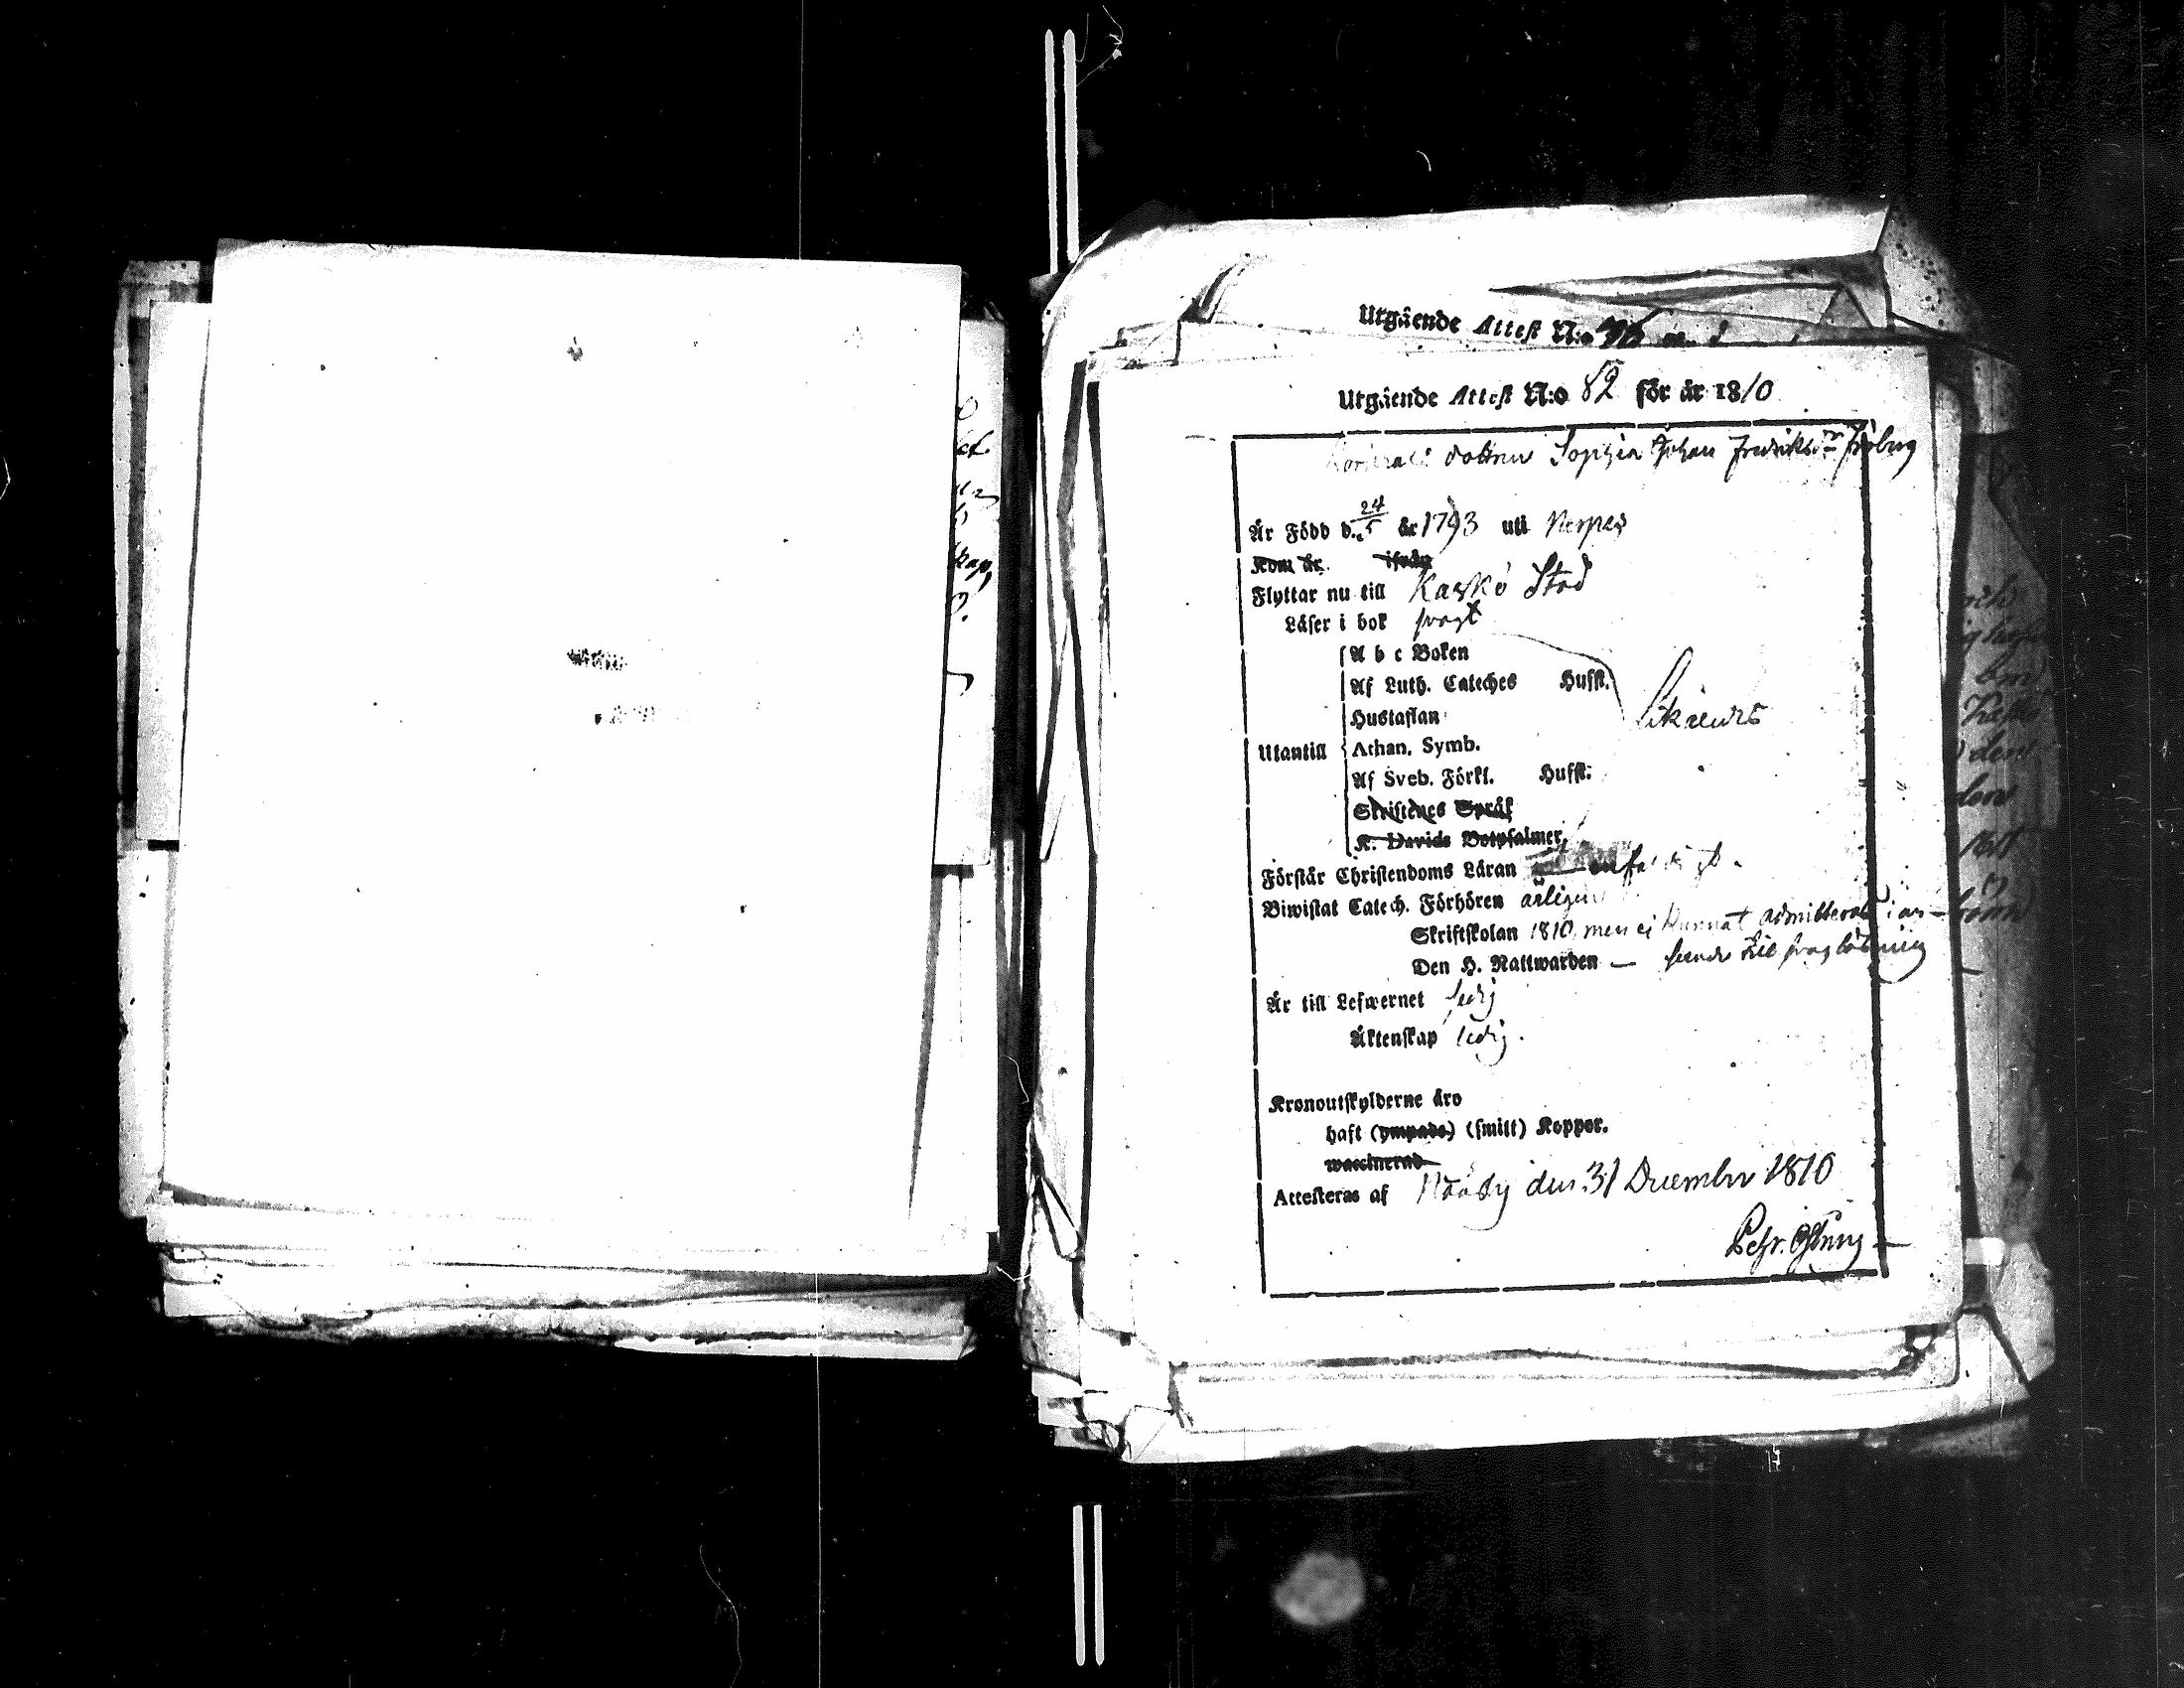 Utgående Attest N:o
Utgående Attest N:o 82 för år 1810
dottren Sophia Johan Fredriksd:r Fröberg
Är Född d. 24/5 år 1793 uti Nerpes
Kom år. ifrån
Flyttar nu till Kaskö Stad
Läser i bok svagt
A b c Boken
Af Luth. Cateches Hufst.
Hustaflan
Likaledes
Utantill Athan. Symb.
Af Sveb. Förkl. Hufst.
Skriftenes Språk
K. Davids Botpsalmer
Förstår Christendoms Läran enfaldigt.
Biwistat Catech. Förhören årligen
Skriftskolan 1810, men ej kunnat admitteras i an-
Den H. Nattwarden — seende til svag läsning
Är till Lefwernet ledig
Äktenskap ledig.
Kronoutskylderne äro
haft (ympade) (smitt) Koppor.
waccinerad
Attesteras af den 31 December 1810
Pehr